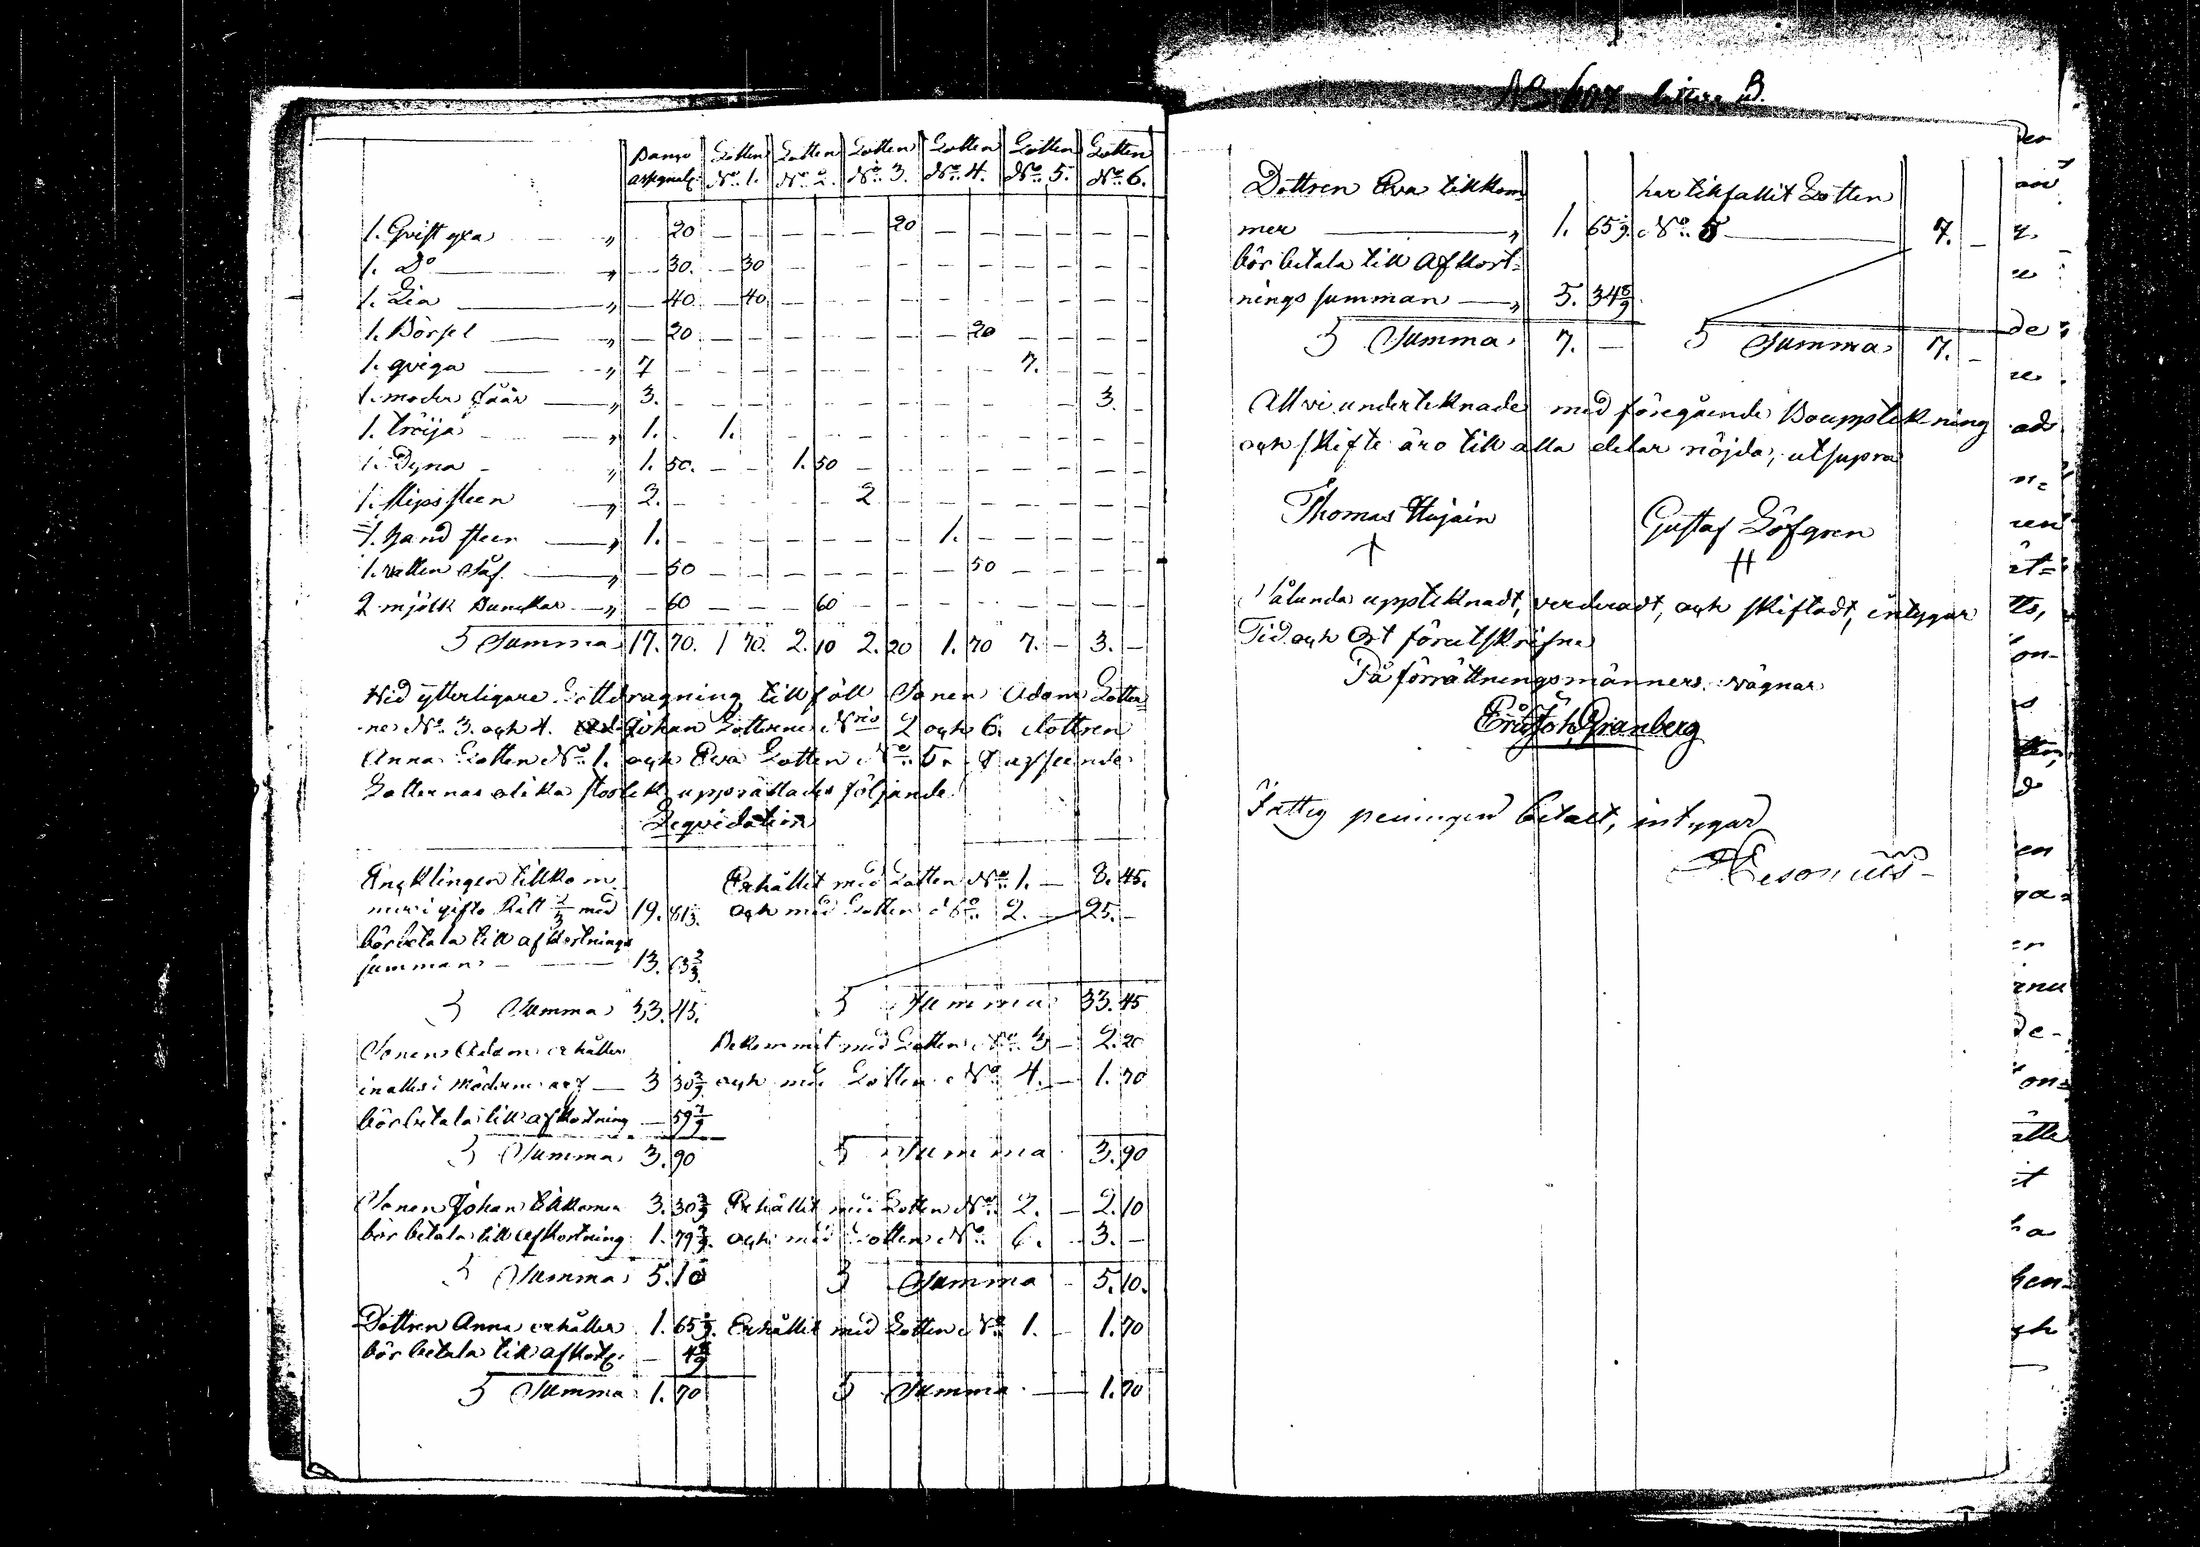 Banco Lotten Lotten Lotten Lotten Lotten Lotten
assignat: No. 1. No. 2. No. 3. No. 4. No. 5. No. 6.
1. Qvist yxa — „ — 20 — — — — — 20 — — — — — —
1. Do — „ — 30. — 30 — — — — — — — — — —
1. Lia — „ — 40. — 40 — — — — — — — — — —
1. Börsel — „ — 20 — — — — — — — 20 — — — —
1. qviga — „ 7 — — — — — — — — — 7. — — —
1. moder fåår — „ 3. — — — — — — — — — — — 3. —
1. tröija — „ 1. — 1. — — — — — — — — — — —
1. Dyna — „ 1. 50. — — 1. 50 — — — — — — — —
1. slipsteen „ 2. — — — — — 2 — — — — — — —
1. hand steen — „ 1. — — — — — — — 1. — — — — —
1. vatten Såf. — „ — 50 — — — — — — — 50 — — — —
2 mjölk Bunckar — „ — 60 — — — 60 — — — — — — — —
Summa 17. 70. 1 70. 2. 10 2. 20 1. 70 7. — 3. —
Vid ytterligare Lottdragning tillföll Sonen Adam Lotter=
ne No. 3. och 4. Johan Lotterne Nris 2 och 6. dottren
Anna Lotten No. 1. och Eva Lotten No. 5.
Lotternas olika storlek upprättades följande
Liqvidation
Encklingen tillkom Erhållit med Lotten No. 1. — 8. 45.
mer i gifto Rätt 2/3 med 19. 81 1/3. och med Lotten 2. — 25. —
bör betala till afkortnings
summan — 13. 63 2/3.
Summa 33. 45. Summa 33. 45
Sonen Adam erhåller Bekommit med Lotten No. 3 — 2. 20
i möderne arf — 3 30 2/9. och med Lotten No. 4. — 1. 70
bör betala till afkortning — 59 7/9
Summa 3. 90 Summa 3. 90
Sonen Johan tillkommer 3. 30 2/9 Erhållit med Lotten No. 2. — 2. 10
bör betala till afkortning 1. 79 7/9. och med Lotten No. 6. — 3. —
Summa 5. 10 Summa — 5. 10.
Dottren Anna erhåller 1. 65 1/9. Erhållit med Lotten No. 1. — 1. 70
bör betala till afkortg: — 4 8/9
Summa 1. 70 Summa — 1. 70
No 607 littera B.
Dottren Eva tillkom har tillfallit Lotten
mer — „ 1. 65 1/9. No. 5 — 7. —
bör betala till Afkort=
nings summan — „ 5. 34 8/9
Summa 7. — Summa 7. —
Att vi undertecknade med föregående Bouppteckning
och skifte äro till alla delar nöjda, utsupra
Thomas Gustaf Löfgren
Sålunda upptecknadt, verderadt, och skiftadt, intygar
Tid och Ort förutskrifne
På förrättningsmänners vägnar
Granberg
Fattig peningen betalt, intygar